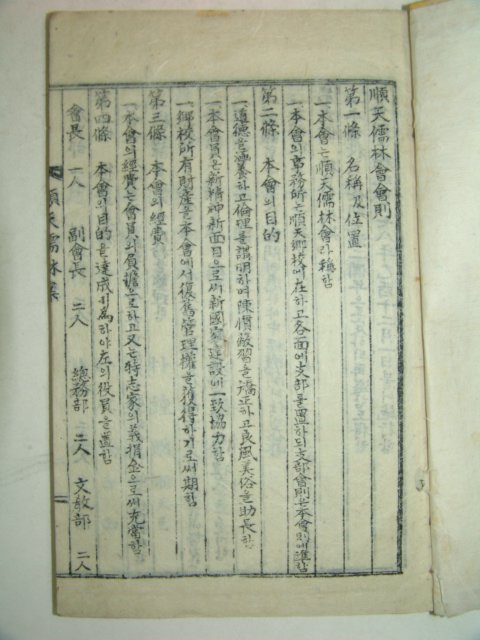 順天儒林會會則
第一條 名稱及位置
一 本會는 順天儒林會라 稱함
一 本會의 事務所는 順天鄕校에 在하고 各面에 支部를 置하되 支部會則은 本會則에 準함
第二條 本會의 目的
一 道德을 涵養하고 倫理를 講明하며 陳慣敝習을 矯正하고 良風美俗을 助長함
一 本會員은 新精神 新面目으로써 新國家 建設에 一致協力함
一 鄕校所有財產을 本會에서 復舊 管理權을 獲得하기로써 期함
第三條 本會의 經費
一 本會의 經費는 會員의 負擔으로 하고 又는 特志家의 義捐金으로써 充當함
第四條 本會의 目的을 達成키 爲하야 左의 役員을 置함
會長 一人 副會長 二人 總務部 二人 文敎部 二人
順天儒林案